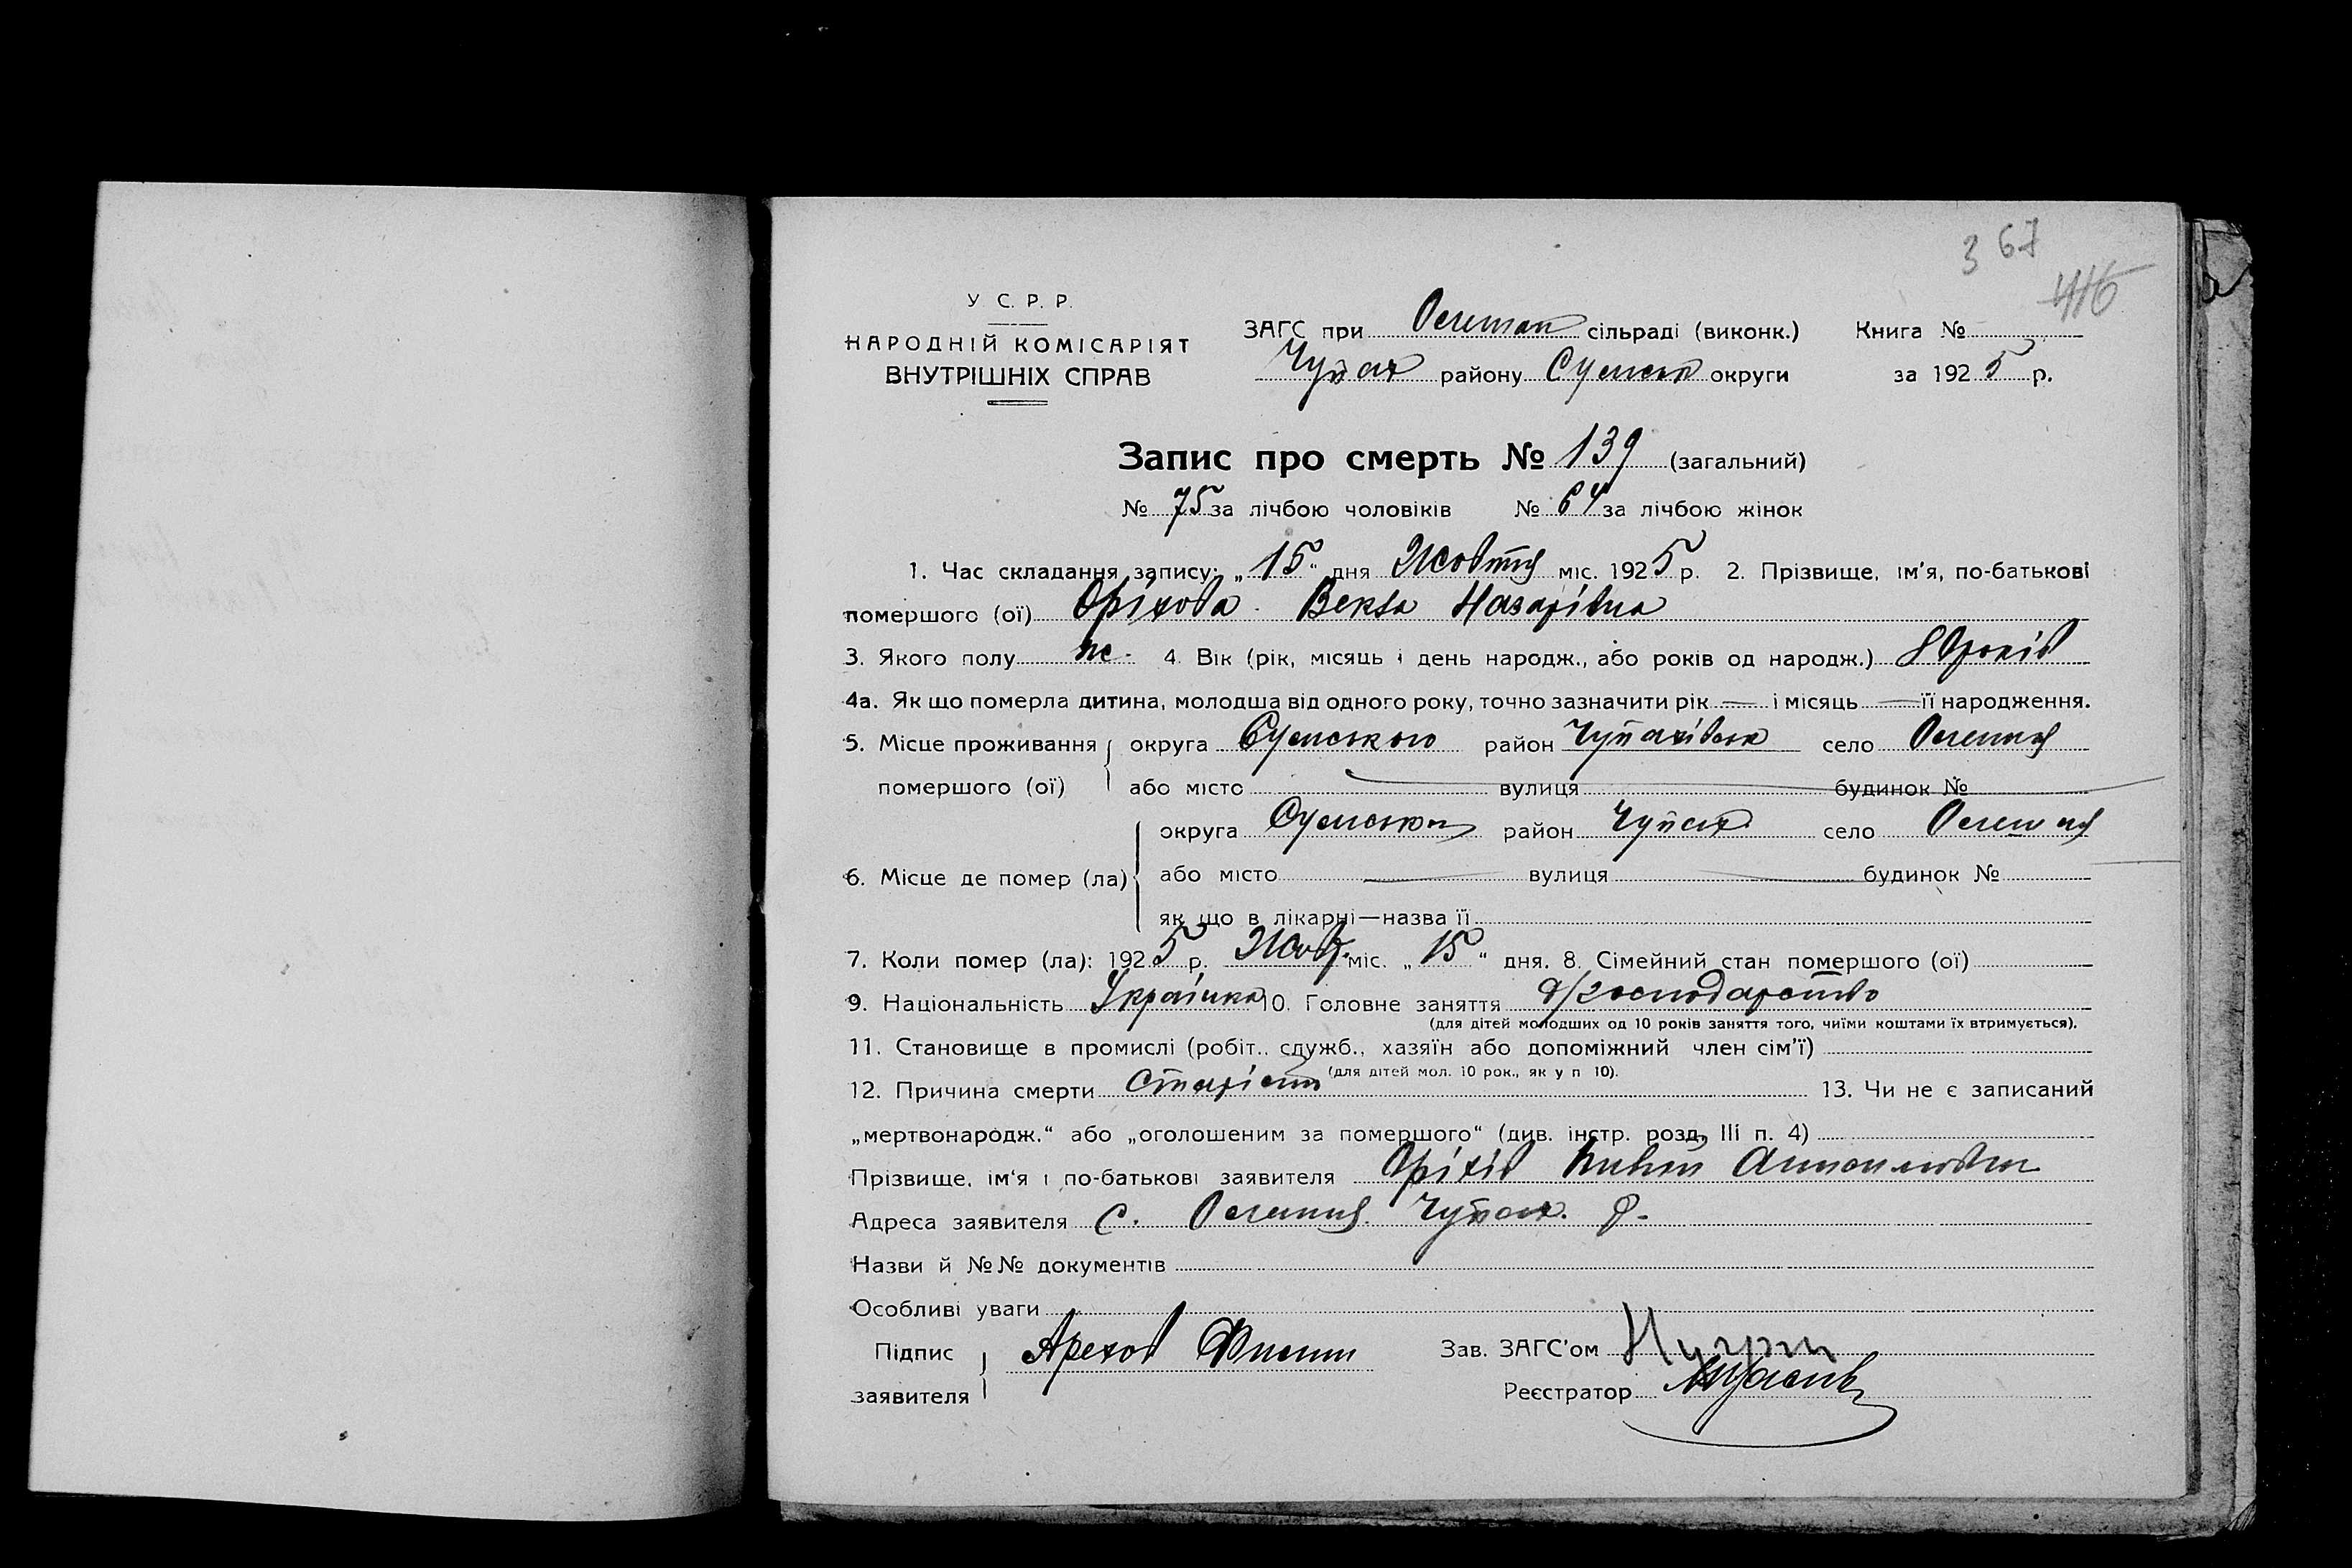 3 67
416
У С. Р. Р.
НАРОДНІЙ КОМІСАРІЯТ
ВНУТРІШНІХ СПРАВ
ЗАГС при сільраді (виконк.) Книга №
Чупах району Сумськ округи за 1925 р.
Запис про смерть № 139 (загальний)
№ 75 за лічбою чоловіків № 64 за лічбою жінок
1. Час складання запису: „15“ дня Жовтня міс. 1925 р. 2. Прізвище, ім'я, по-батькові
помершого (ої) Оріхова Векла Назарівна
3. Якого полу ж. 4. Вік (рік, місяць і день народж., або років од народж.) 80 років
4а. Як що померла дитина, молодша від одного року, точно зазначити рік — і місяць — її народження.
5. Місце проживання округа Сумського район Чупахівськ село
помершого (ої) або місто вулиця будинок №
округа Сумськог район Чупах. село
6. Місце де помер (ла) або місто — вулиця — будинок №
як що в лікарні—назва її
7. Коли помер (ла): 1925 р. Жовт. міс. „15“ дня. 8. Сімейний стан помершого (ої)
9. Національність Українка 10. Головне заняття д/господарство
(для дітей молодших од 10 років заняття того, чиїми коштами їх втримується).
11. Становище в промислі (робіт., служб., хазяїн або допоміжний член сім'ї)
(для дітей мол. 10 рок., як у п 10).
12. Причина смерти старість 13. Чи не є записаний
„мертвонародж.“ або „оголошеним за помершого“ (див. інстр. розд. III п. 4)
Прізвище, ім'я і по-батькові заявителя Оріхів
Адреса заявителя с. Чупах. р.
Назви й №№ документів
Особливі уваги
Підпис Арехов Зав. ЗАГС'ом
заявителя Реєстратор